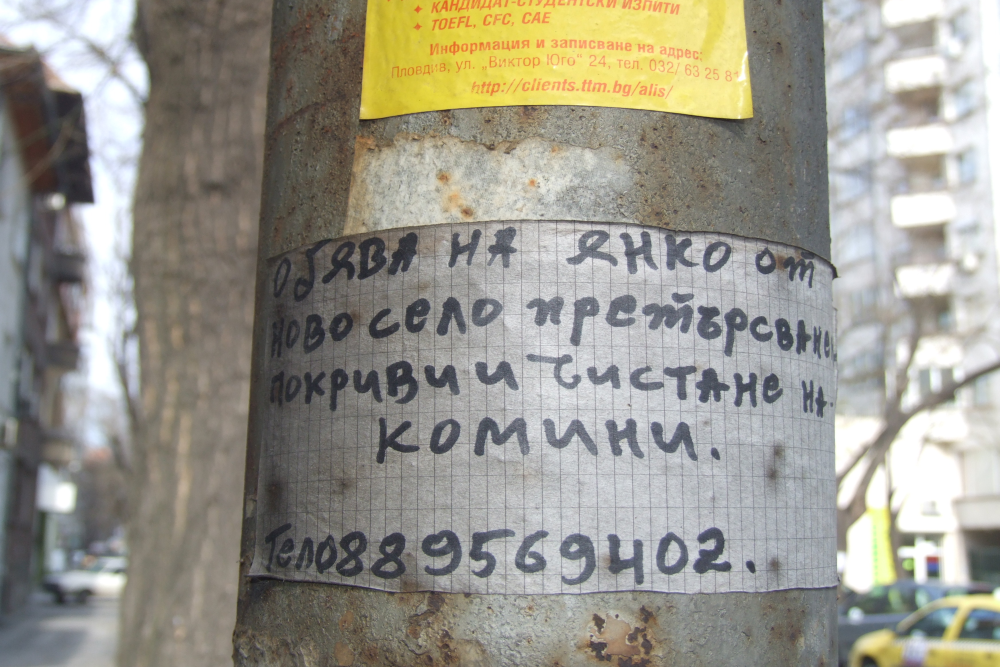 ✦ КАНДИДАТ-СТУДЕНТСКИ ИЗПИТИ
✦ TOEFL, CFC, CAE
Информация и записване на адрес:
Пловдив, ул. „Виктор Юго" 24, тел. 032/ 63 25 81
http://clients.ttm.bg/alis/
ОБЯВА НА ЯНКО от
ново село претърсване
покриви и чистане на
комини.
Тел0889569402.